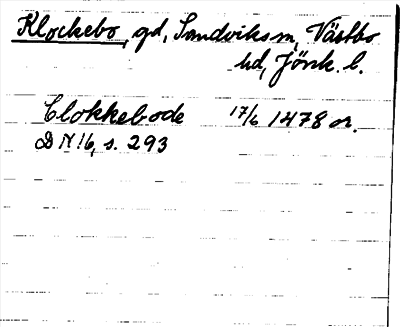 Klockebo, gd, Sandviks sn, Västbo
hd, Jönk. l.
Clokkebode 17/6 1478 or.
DN 16, s. 293